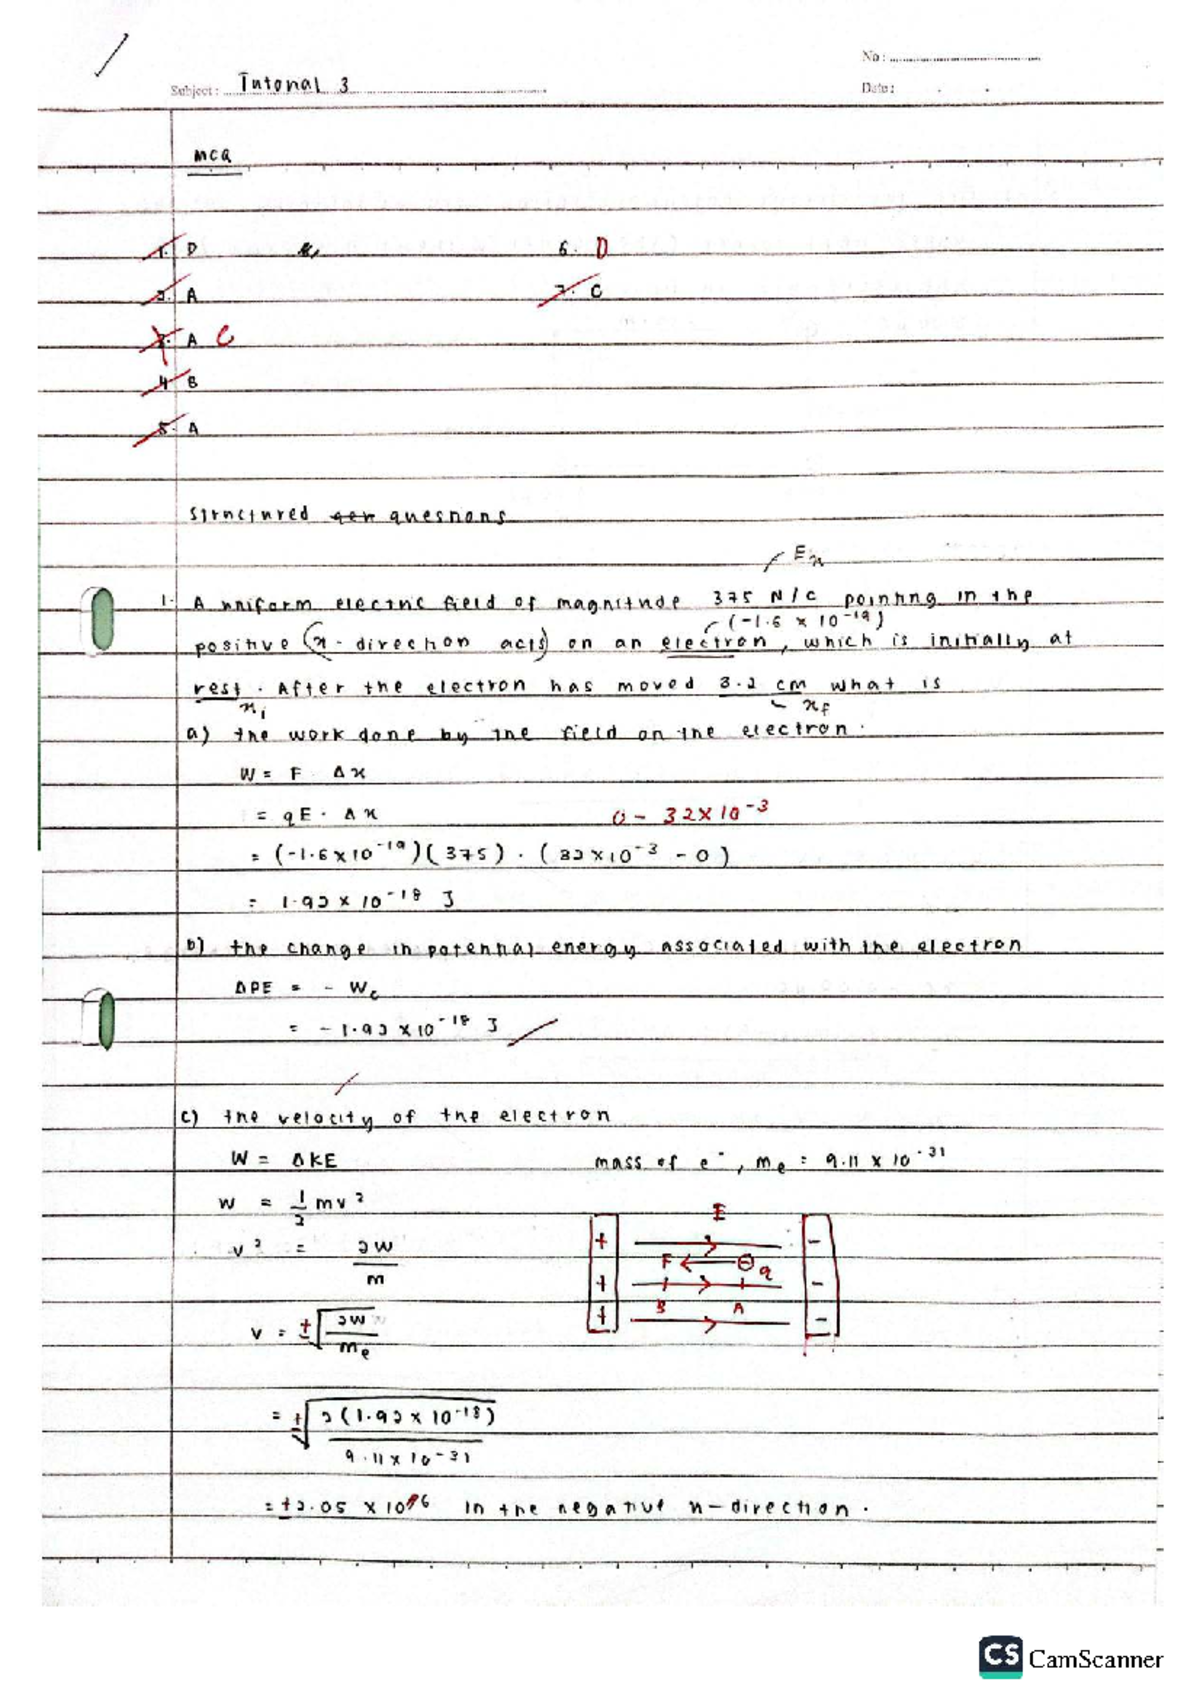 No :
Subject : Tutorial 3
Date :
MCQ
1. D
6. D
2. A
7. C
3. A C
4. B
5. A
Structured questions
Ex
1. A uniform electric field of magnitude 375 N/C pointing in the
(-1.6 x 10-19)
positive (x-direction acts) on an electron, which is initially at
rest. After the electron has moved 3.2 cm what is
xi
xf
a) the work done by the field on the electron.
W = F · Δx
= qE · Δx
0 - 32 x 10-3
= (-1.6 x 10-19)(375) · (32 x 10-3 - 0)
= 1.92 x 10-18 J
b) the change in potential energy associated with the electron
ΔPE = - Wc
= - 1.92 x 10-18 J
c) the velocity of the electron
W = ΔKE
mass of e-, me = 9.11 x 10-31
W = 1/2 mv2
E
v2 = 2W/m
+ -
F q
+ -
B A
+ -
v = ±√2W/me
= ±√2(1.92 x 10-18)/9.11 x 10-31
= ±2.05 x 106 in the negative x-direction.
CS CamScanner